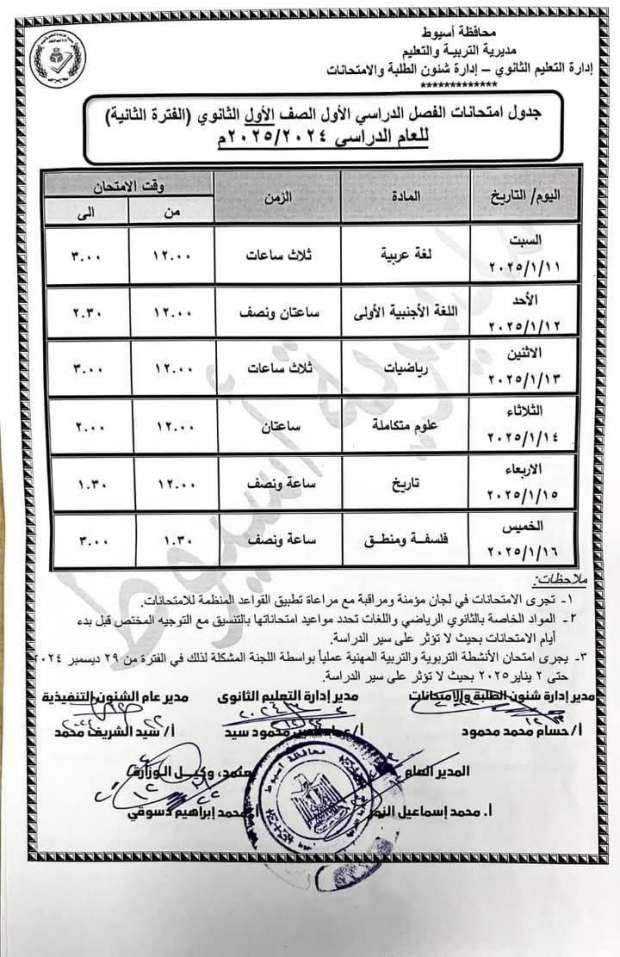 محافظة أسيوط
مديرية التربية والتعليم
إدارة التعليم الثانوي – إدارة شئون الطلبة والامتحانات
*************
جدول امتحانات الفصل الدراسي الأول الصف الأول الثانوي (الفترة الثانية)
للعام الدراسي ٢٠٢٥/٢٠٢٤م
اليوم/ التاريخ المادة الزمن وقت الامتحان
من الى
السبت ٢٠٢٥/١/١١ لغة عربية ثلاث ساعات ١٢.٠٠ ٣.٠٠
الأحد ٢٠٢٥/١/١٢ اللغة الأجنبية الأولى ساعتان ونصف ١٢.٠٠ ٢.٣٠
الاثنين ٢٠٢٥/١/١٣ رياضيات ثلاث ساعات ١٢.٠٠ ٣.٠٠
الثلاثاء ٢٠٢٥/١/١٤ علوم متكاملة ساعتان ١٢.٠٠ ٢.٠٠
الاربعاء ٢٠٢٥/١/١٥ تاريخ ساعة ونصف ١٢.٠٠ ١.٣٠
الخميس ٢٠٢٥/١/١٦ فلسفة ومنطق ساعة ونصف ١.٣٠ ٣.٠٠
ملاحظات:
١- تجرى الامتحانات في لجان مؤمنة ومراقبة مع مراعاة تطبيق القواعد المنظمة للامتحانات.
٢- المواد الخاصة بالثانوي الرياضي واللغات تحدد مواعيد امتحاناتها بالتنسيق مع التوجيه المختص قبل بدء
أيام الامتحانات بحيث لا تؤثر على سير الدراسة.
٣- يجرى امتحان الأنشطة التربوية والتربية المهنية عملياً بواسطة اللجنة المشكلة لذلك في الفترة من ٢٩ ديسمبر ٢٠٢٤
حتى ٢ يناير ٢٠٢٥ بحيث لا تؤثر على سير الدراسة.
مدير إدارة شئون الطلبة والامتحانات مدير إدارة التعليم الثانوى مدير عام الشئون التنفيذية
أ/ حسام محمد محمود محمود سيد أ/ سيد الشريف محمد
المدير العام يعتمد، وكيل الوزارة
أ. محمد إسماعيل النمر محمد إبراهيم دسوقي
محافظة أسيوط
مديرية أسيوط